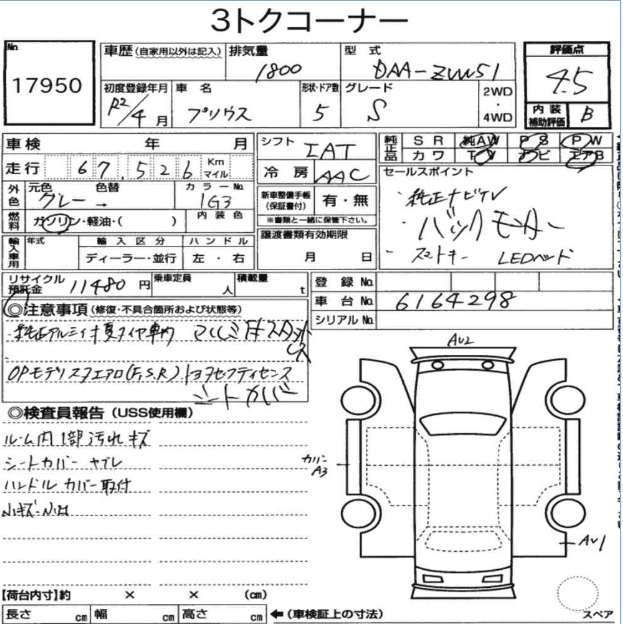 3トクコーナー
No.
17950
車歴 (自家用以外は記入)
排気量
1800
型式
DAA-ZVW51
評価点
4.5
内装補助評価
B
初度登録年月
R2/4月
車名
プリウス
形状・ドア数
5
グレード
S
2WD
・
4WD
車検 年 月
シフト
IAT
純正品
SR 純AW PS PW
カワ TV ナビ エアB
走行 67,526 Km マイル
冷房
AAC
セールスポイント
・純正ナビTV
・バックモニター
・スマートキー LEDヘッド
外色
元色 色替
グレー →
カラーNo.
1G3
新車整備手帳(保証書付)
有・無
※書類と一緒に保管下さい。
燃料
ガソリン・軽油・( )
内装色
譲渡書類有効期限
月 日
輸入車用
年式
輸入区分
ディーラー・並行
ハンドル
左・右
リサイクル預託金
11480円
乗車定員
人
積載量
t
登録No.
車台No.
6164298
シリアルNo.
◎注意事項 (修復・不具合箇所および状態等)
・純正アルミ
OPモデリスタエアロ(F,S,R) トヨタセフティセンス
シートカバー
◎検査員報告 (USS使用欄)
ルーム内1部汚れキズ
シートカバー ヤブレ
ハンドルカバー取付
小キズ・小凹
AU2
カバー
A3
AU1
スペア
【荷台内寸】約 × × (cm)
長さ cm 幅 cm 高さ cm ←(車検証上の寸法)